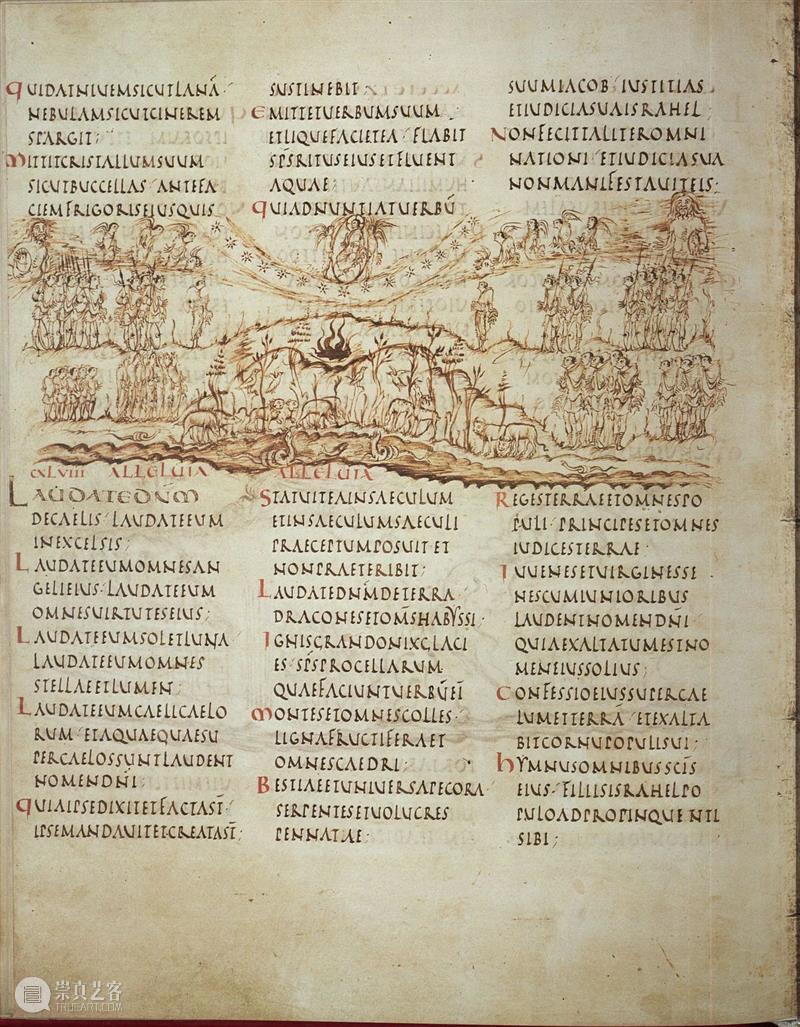 QUIDATNIVEMSICUTLANĀ·
NEBULAMSICUTCINEREM
SPARGIT;
MITTITCRISTALLUMSUUM
SICUTBUCCELLAS·ANTEFA
CIEMFRIGORISEIUSQUIS
SUSTINEBIT·
EMITTETVERBUMSUUM
ETLIQUEFACIETEA·FLABIT
SPSRITUSEIUSETFLUENT
AQUAE;
QUIADNUNTIATVERBŪ
SUUMIACOB·IUSTITIAS
ETIUDICIASUAISRAHEL
NONFECITTALITEROMNI
NATIONI·ETIUDICIASUA
NONMANIFESTAVITEIS;
CXLVIII ALLELUIA ALLELUIA
LAUDATEDNM
DECAELIS·LAUDATEEUM
INEXCELSIS;
LAUDATEEUMOMNESAN
GELIEIUS·LAUDATEEUM
OMNESVIRTUTESEIUS;
LAUDATEEUMSOLETLUNA
LAUDATEEUMOMNES
STELLAEETLUMEN;
LAUDATEEUMCAELICAELO
RUM·ETAQUAEQUAESU
PERCAELOSSUNTLAUDENT
NOMENDNI;
QUIAIPSEDIXITETFACTAST·
IPSEMANDAVITETCREATAST;
STATUITEAINSAECULUM
ETINSAECULUMSAECULI
PRAECEPTUMPOSUITET
NONPRAETERIBIT;
LAUDATEDNMDETERRA
DRACONESETOMSHABYSSI·
IGNISGRANDONIXGLACI
ES·SPSPROCELLARUM
QUAEFACIUNTVERBŪEI
MONTESETOMNESCOLLES·
LIGNAFRUCTIFERAET
OMNESCAEDRI;
BESTIAEETUNIVERSAPECORA·
SERPENTESETVOLUCRES
PENNATAE;
REGESTERRAEETOMNESPO
PULI·PRINCIPESETOMNES
IUDICESTERRAE·
IUVENESETVIRGINESSE
NESCUMIUNIORIBUS
LAUDENTNOMENDNI
QUIAEXALTATUMESTNO
MENEIUSSOLIUS;
CONFESSIOEIUSSUPERCAE
LUMETTERRĀ·ETEXALTA
BITCORNUPOPULISUI;
HYMNUSOMNIBUSSCIS
EIUS·FILIISISRAHELPO
PULOADPROPINQUENTI
SIBI;
崇真艺客
TRUEART.COM